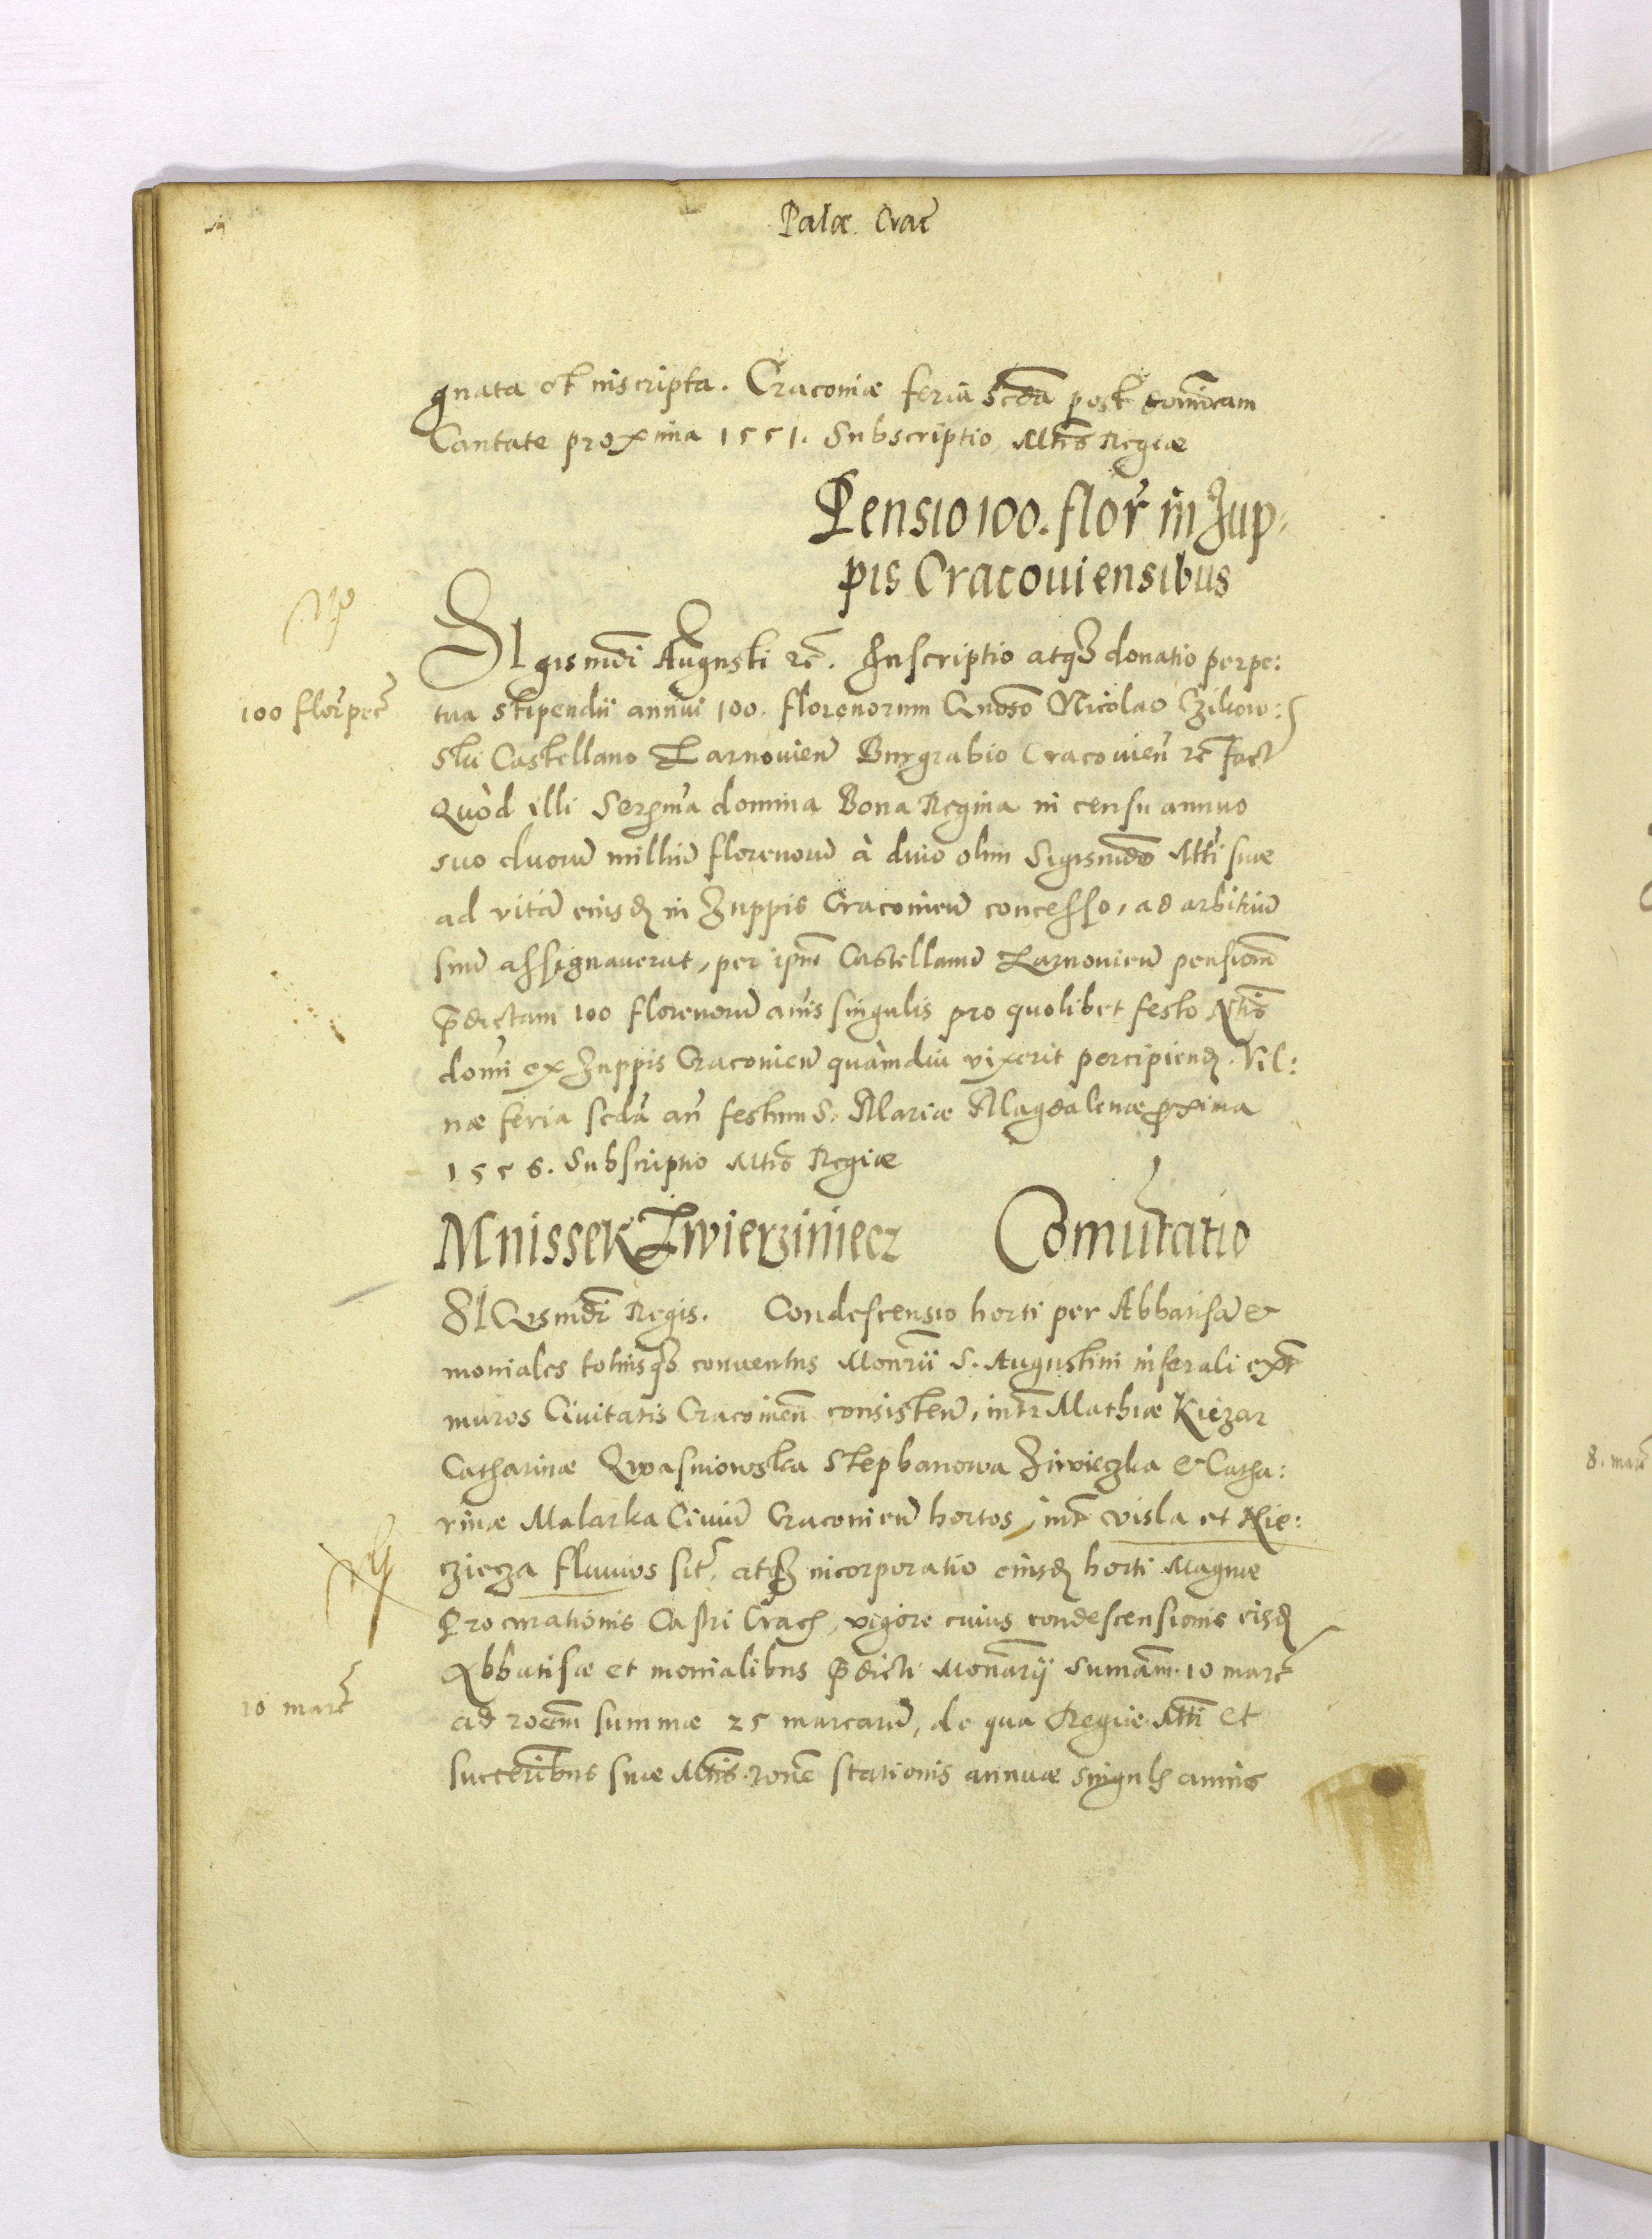 Palae. Crac
gnata et inscripta. Cracoviae feria scda post dominicam
Cantate proxima 1551. Subscriptio Mtis Regiae
Pensio 100. flor in Zup-
pis Cracouiensibus
SIgismdi Augusti rc. Inscriptio atqz donatio perpe:
100 flor pec
tua stipendii annui 100. florenorum Gnoso Nicolao Czikow:
ski Castellano Tarnouien Burgrabio Cracouien rc fact
Quòd illi Serma domina Bona Regina in censu annuo
suo duorum millium florenorum à diuo olim Sigismdo Mtti suae
ad vitam eiusd in Zuppis Cracouien concesso, ad arbitrium
suum assignauerat, per ipm Castellanum Tarnouien pensionem
pdictam 100 florenorum annis singulis pro quolibet festo Ntis
domi ex Zuppis Cracouien quàmdiu vixerit percipiend. Vil:
nae feria scda an festum S. Mariae Magdalenae pxima
1556. Subscriptio Mtis Regiae
Mnissek Zwierziniecz Comutatio
SIGismdi Regis. Condescensio horti per Abbatissam et
moniales totiusqz conuentus Monrii S. Augustini inferali ext
muros Ciuitatis Cracouien consisten, intr Mathiae Kiezar
Catharinae Qwasniowska Stephanowa Ziwieczka et Catha:
rinae Malarka Ciuium Cracouien hortos, int visla et Nie:
czieza fluuios sit, atqz incorporatio eiusd horti Magnae
Procurationis Castri Crac, vigore cuius condescensionis eisd
Abbatissae et monialibus pdicti Monarii Sumam 10 marc
10 marc
ad roem summae 25 marcarum, de qua Regiae Mtti et
succeribus suae Mtis roe stationis annuae singulis annis
8. marc